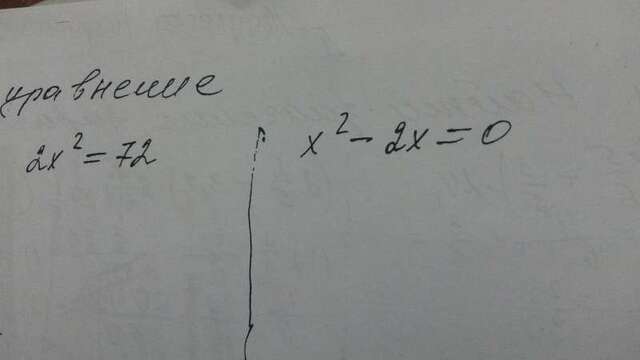 уравнение
2x² = 72
x² - 2x = 0